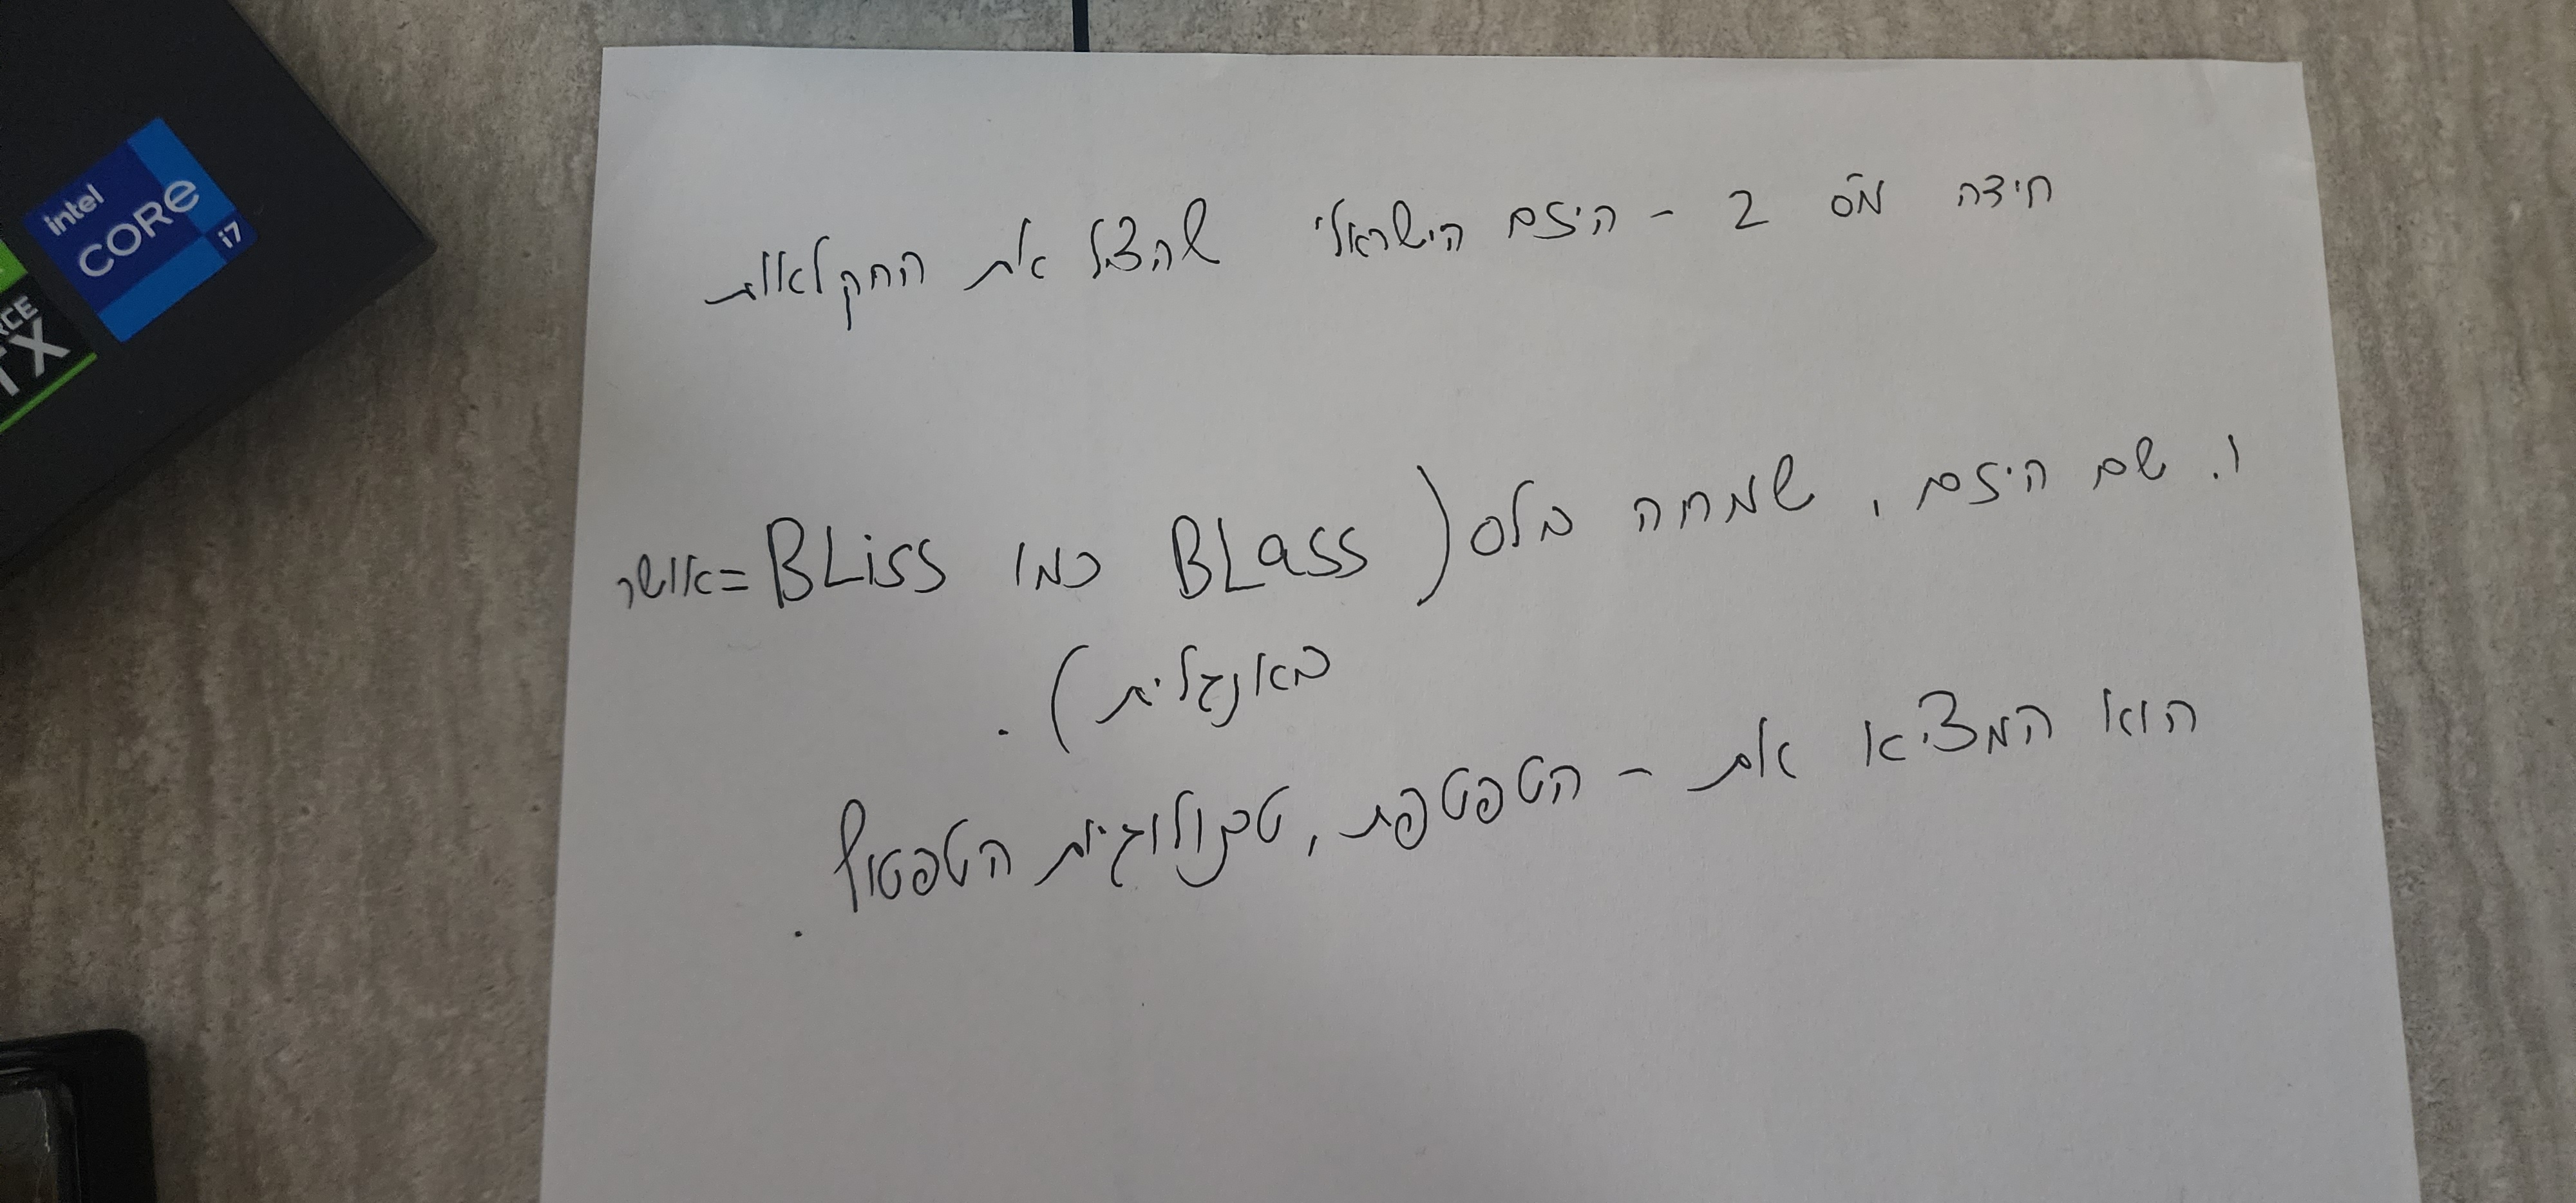 חידה מס 2 - היזם הישראלי שהציל את החקלאות
1. שם היזם, שמחה בלס (BLass כמו BLiss=אושר
באנגלית).
הוא המציא את - הטפטפת, טכנולוגית הטפטוף.
intel
CORE
i7
RCE
TX